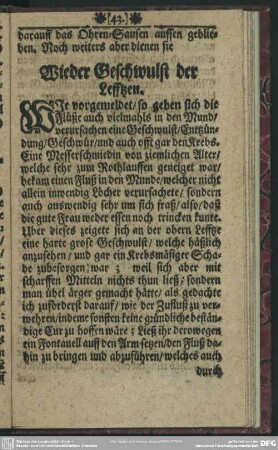 [43.]
darauff das Ohren-Sausen aussen geblie-
ben. Noch weiters aber dienen sie
Wieder Geschwulst der
Lefftzen.
WJe vorgemeldet/ so geben sich die
Flüße auch vielmahls in den Mund/
verursachen eine Geschwulst/ Entzün-
dung/ Geschwür/ und auch offt gar den Krebs.
Eine Messerschmiedin von ziemlichen Alter/
welche sehr zum Rothlauffen geneiget war/
bekam einen Fluß in den Munde/ welcher nicht
allein inwendig Löcher verursachete/ sondern
auch auswendig sehr um sich fraß/ also/ daß
die gute Frau weder essen noch trincken kunte.
Uber dieses zeigete sich an der obern Lefftze
eine harte grose Geschwulst/ welche häßlich
anzusehen/ und gar ein Krebsmäßiger Scha-
de zubesorgen war; weil sich aber mit
scharffen Mitteln nichts thun ließ/ sondern
man übel ärger gemacht hätte/ als gedachte
ich zuförderst darauf/ wie der Zufluß zu ver-
wehren/ indeme sonsten keine gründliche bestän-
dige Cur zu hoffen wäre; Ließ ihr derowegen
ein Fontanell auff den Arm setzen/ den Fluß da-
hin zu bringen und abzuführen/ welches auch
durch